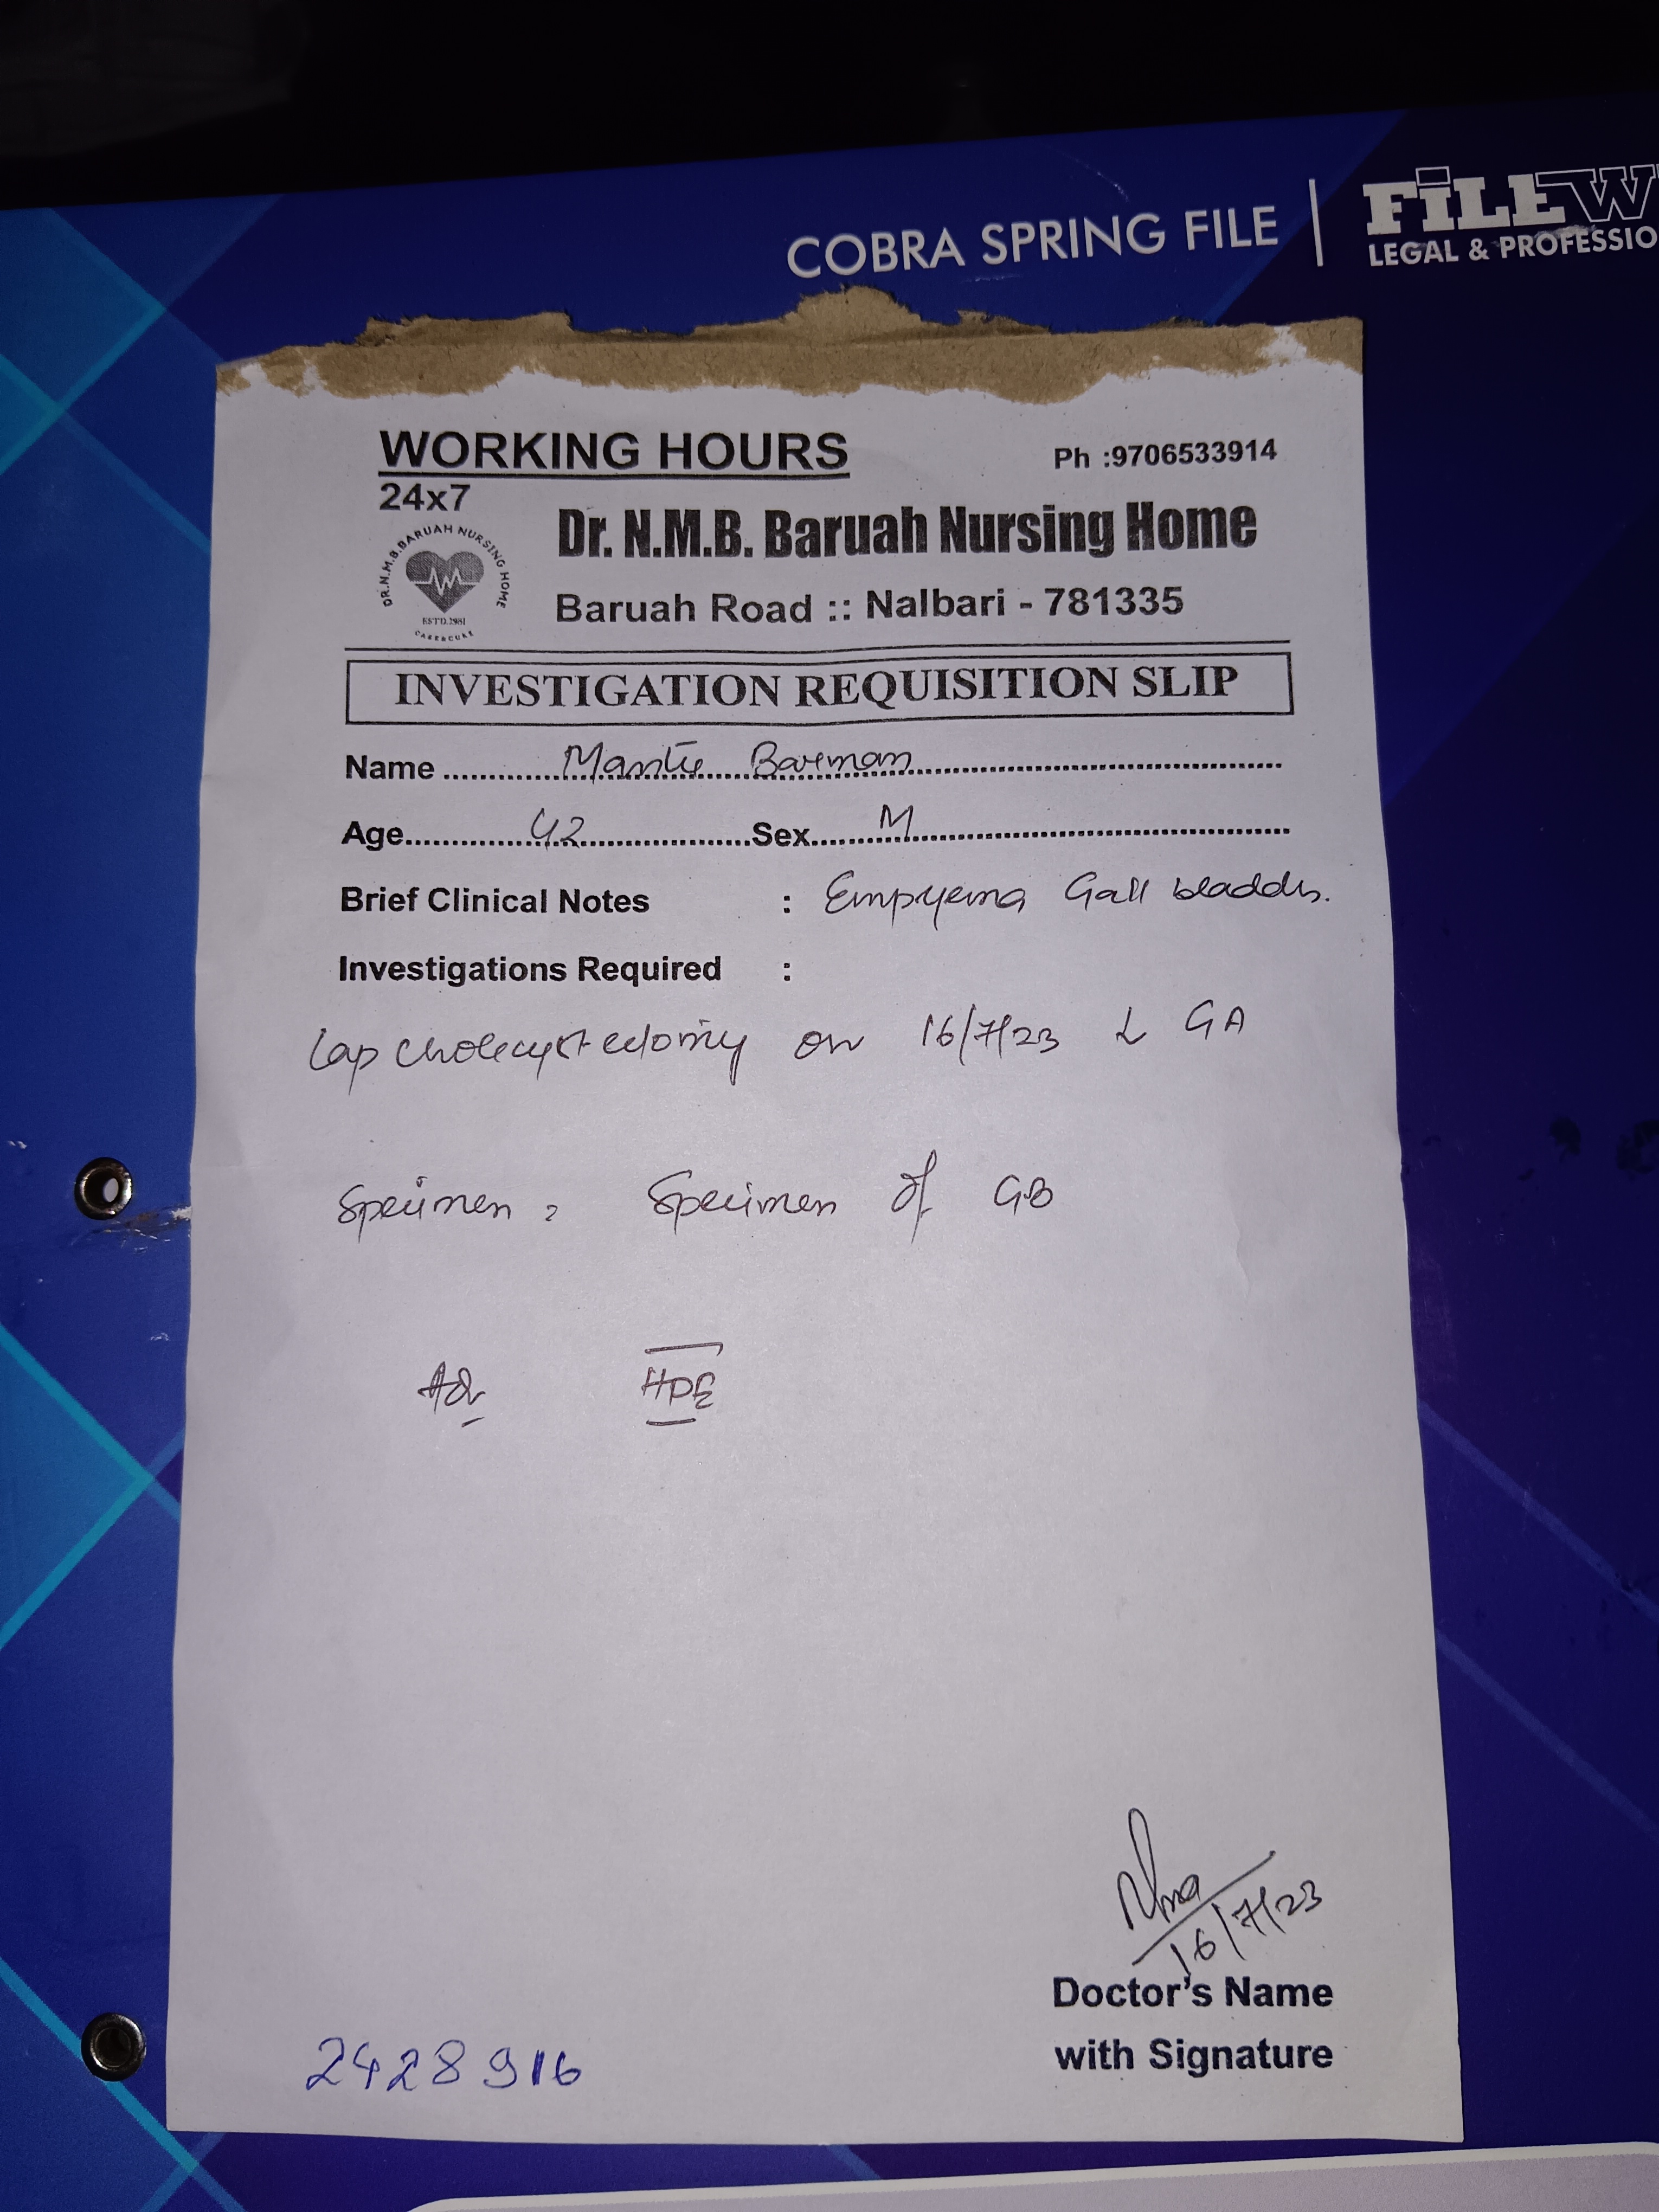 COBRA SPRING FILE
FILEW
LEGAL & PROFESSIO
WORKING HOURS
24x7
Ph :9706533914
DR.N.M.B.BARUAH NURSING HOME
ESTD.1981
CARE&CURE
Dr. N.M.B. Baruah Nursing Home
Baruah Road :: Nalbari - 781335
INVESTIGATION REQUISITION SLIP
Name Barman
Age 42 Sex M
Brief Clinical Notes : Empyema Gall bladder.
Investigations Required :
Lap cholecystectomy on 16/7/23 GA
Specimen : Specimen of GB
HPE
16/7/23
Doctor's Name
with Signature
2428916